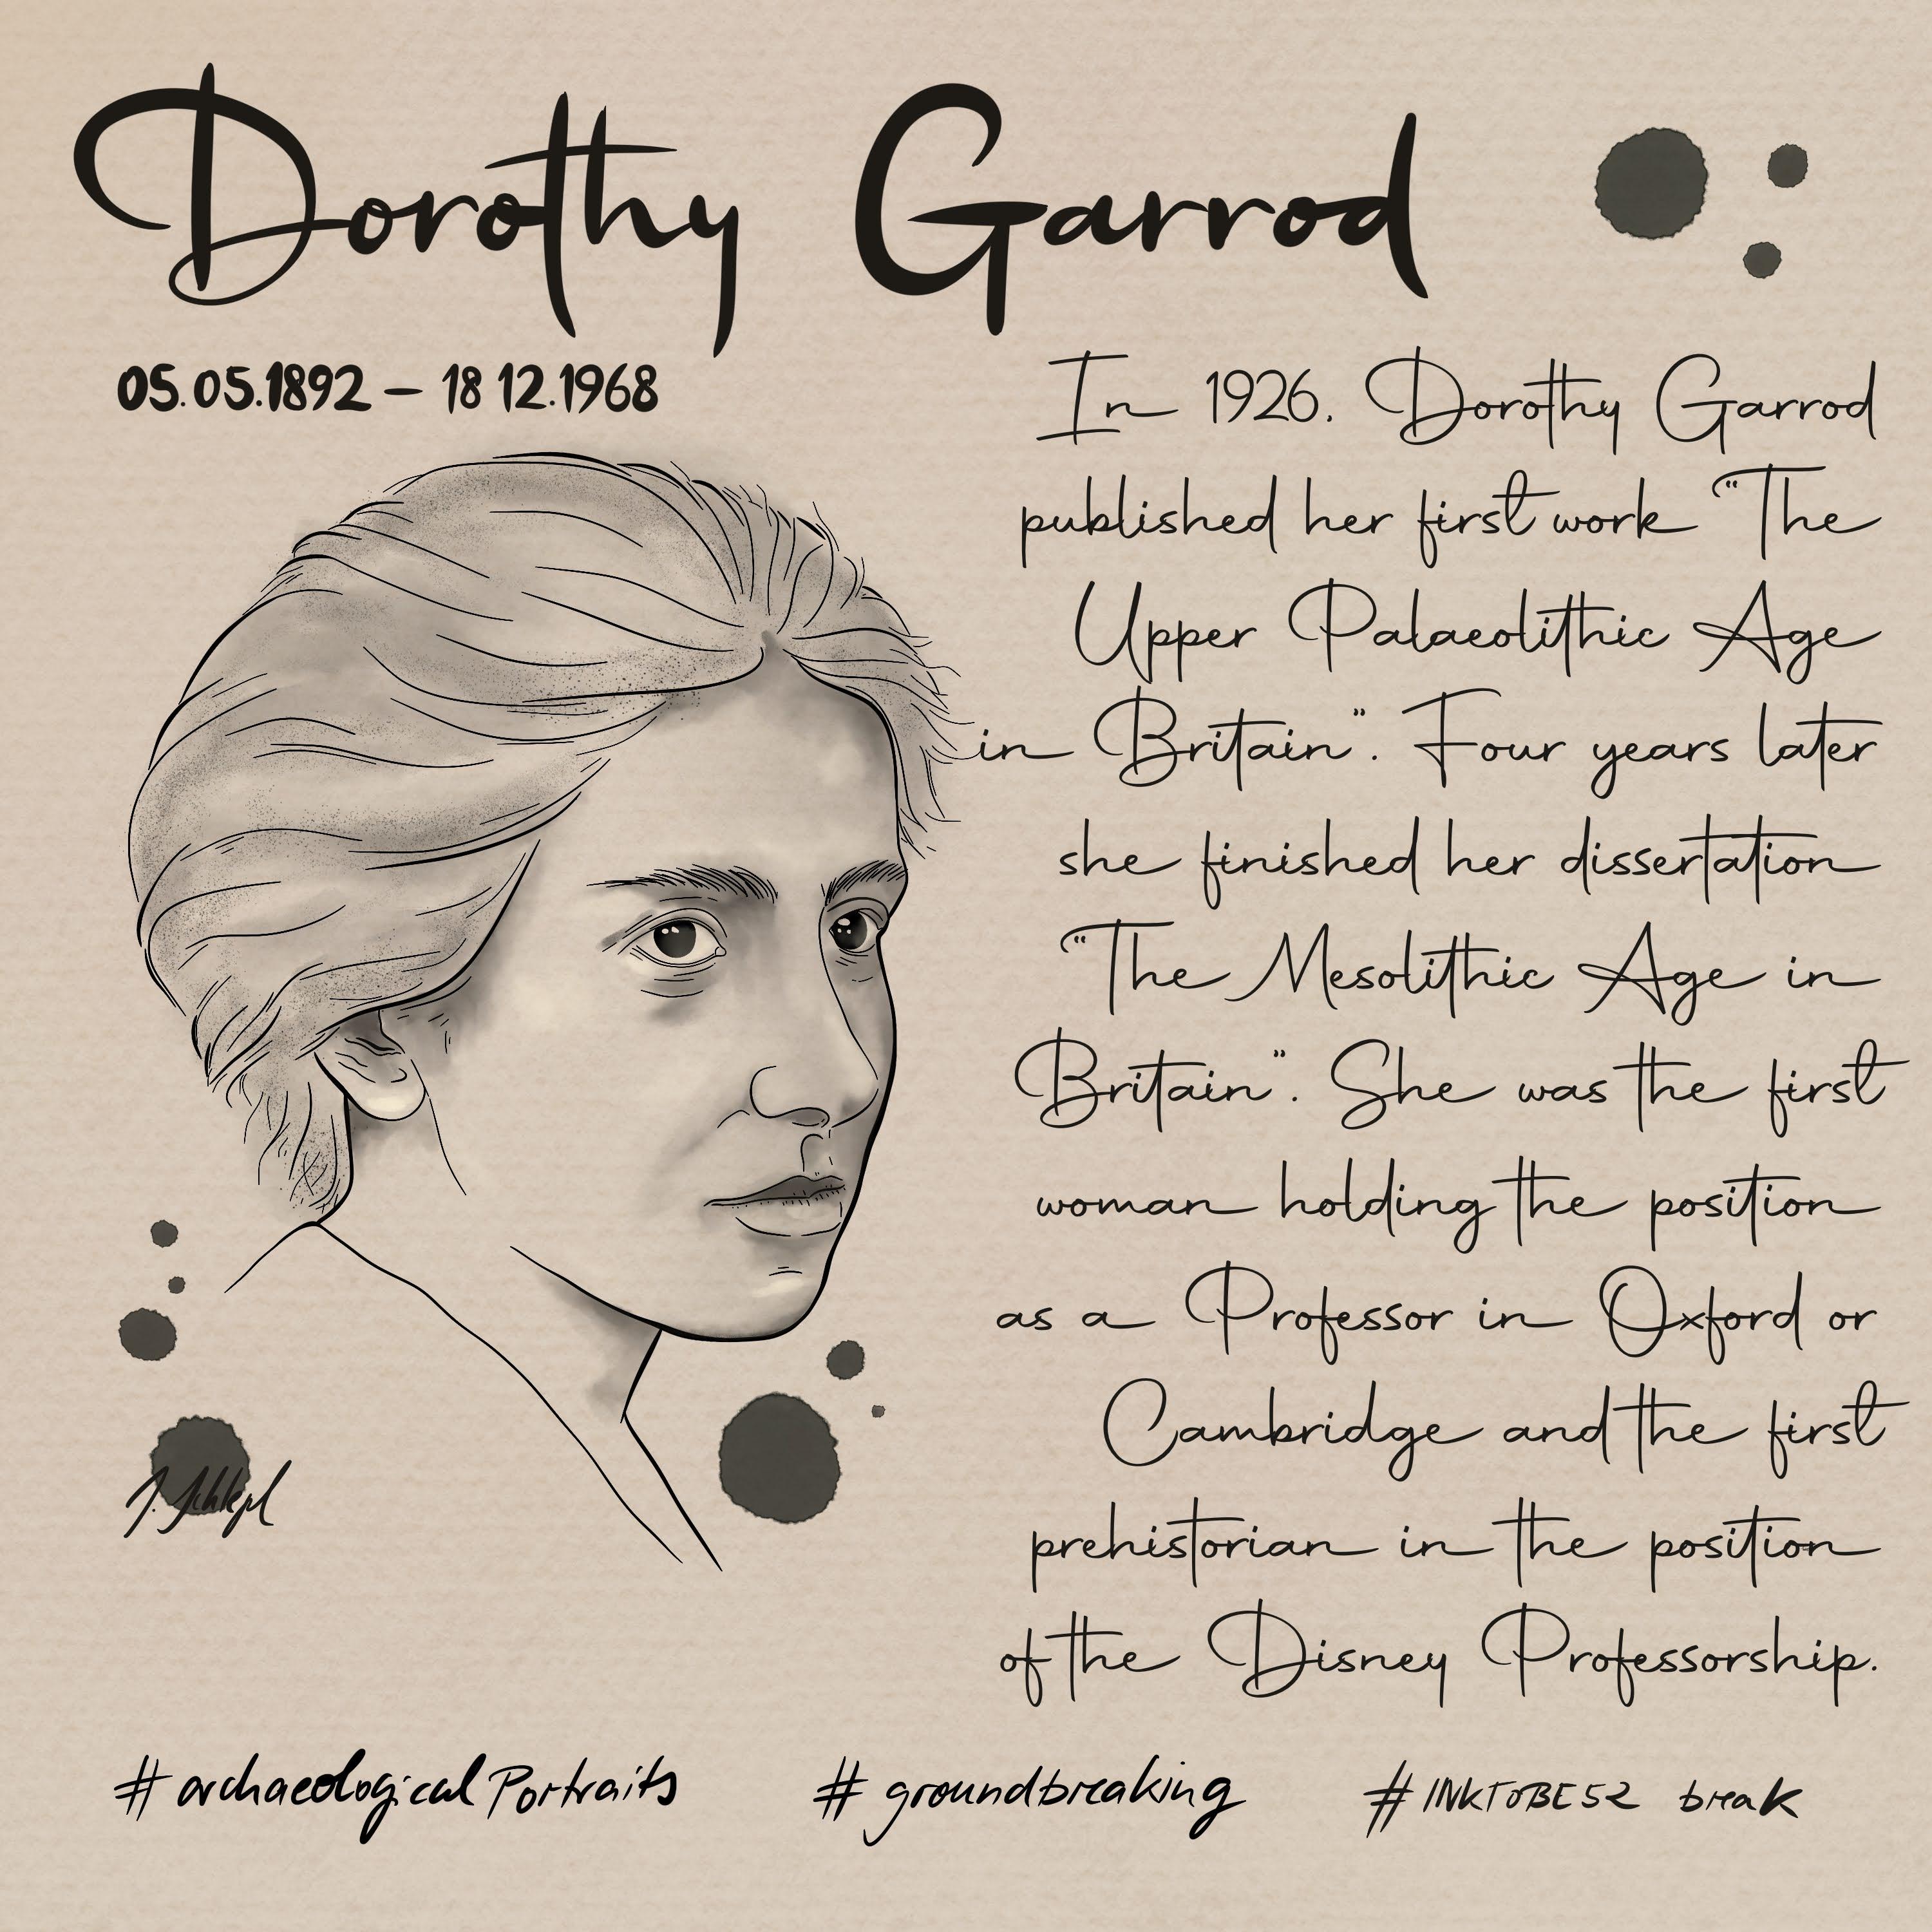 Dorothy Garrod
05.05.1892 – 18 12.1968
In 1926. Dorothy Garrod
published her first work "The
Upper Palaeolithic Age
in Britain". Four years later
she finished her dissertation
"The Mesolithic Age in
Britain". She was the first
woman holding the position
as a Professor in Oxford or
Cambridge and the first
prehistorian in the position
of the Disney Professorship.
#archaeological Portraits
#groundbreaking
#INKTOBE52 break